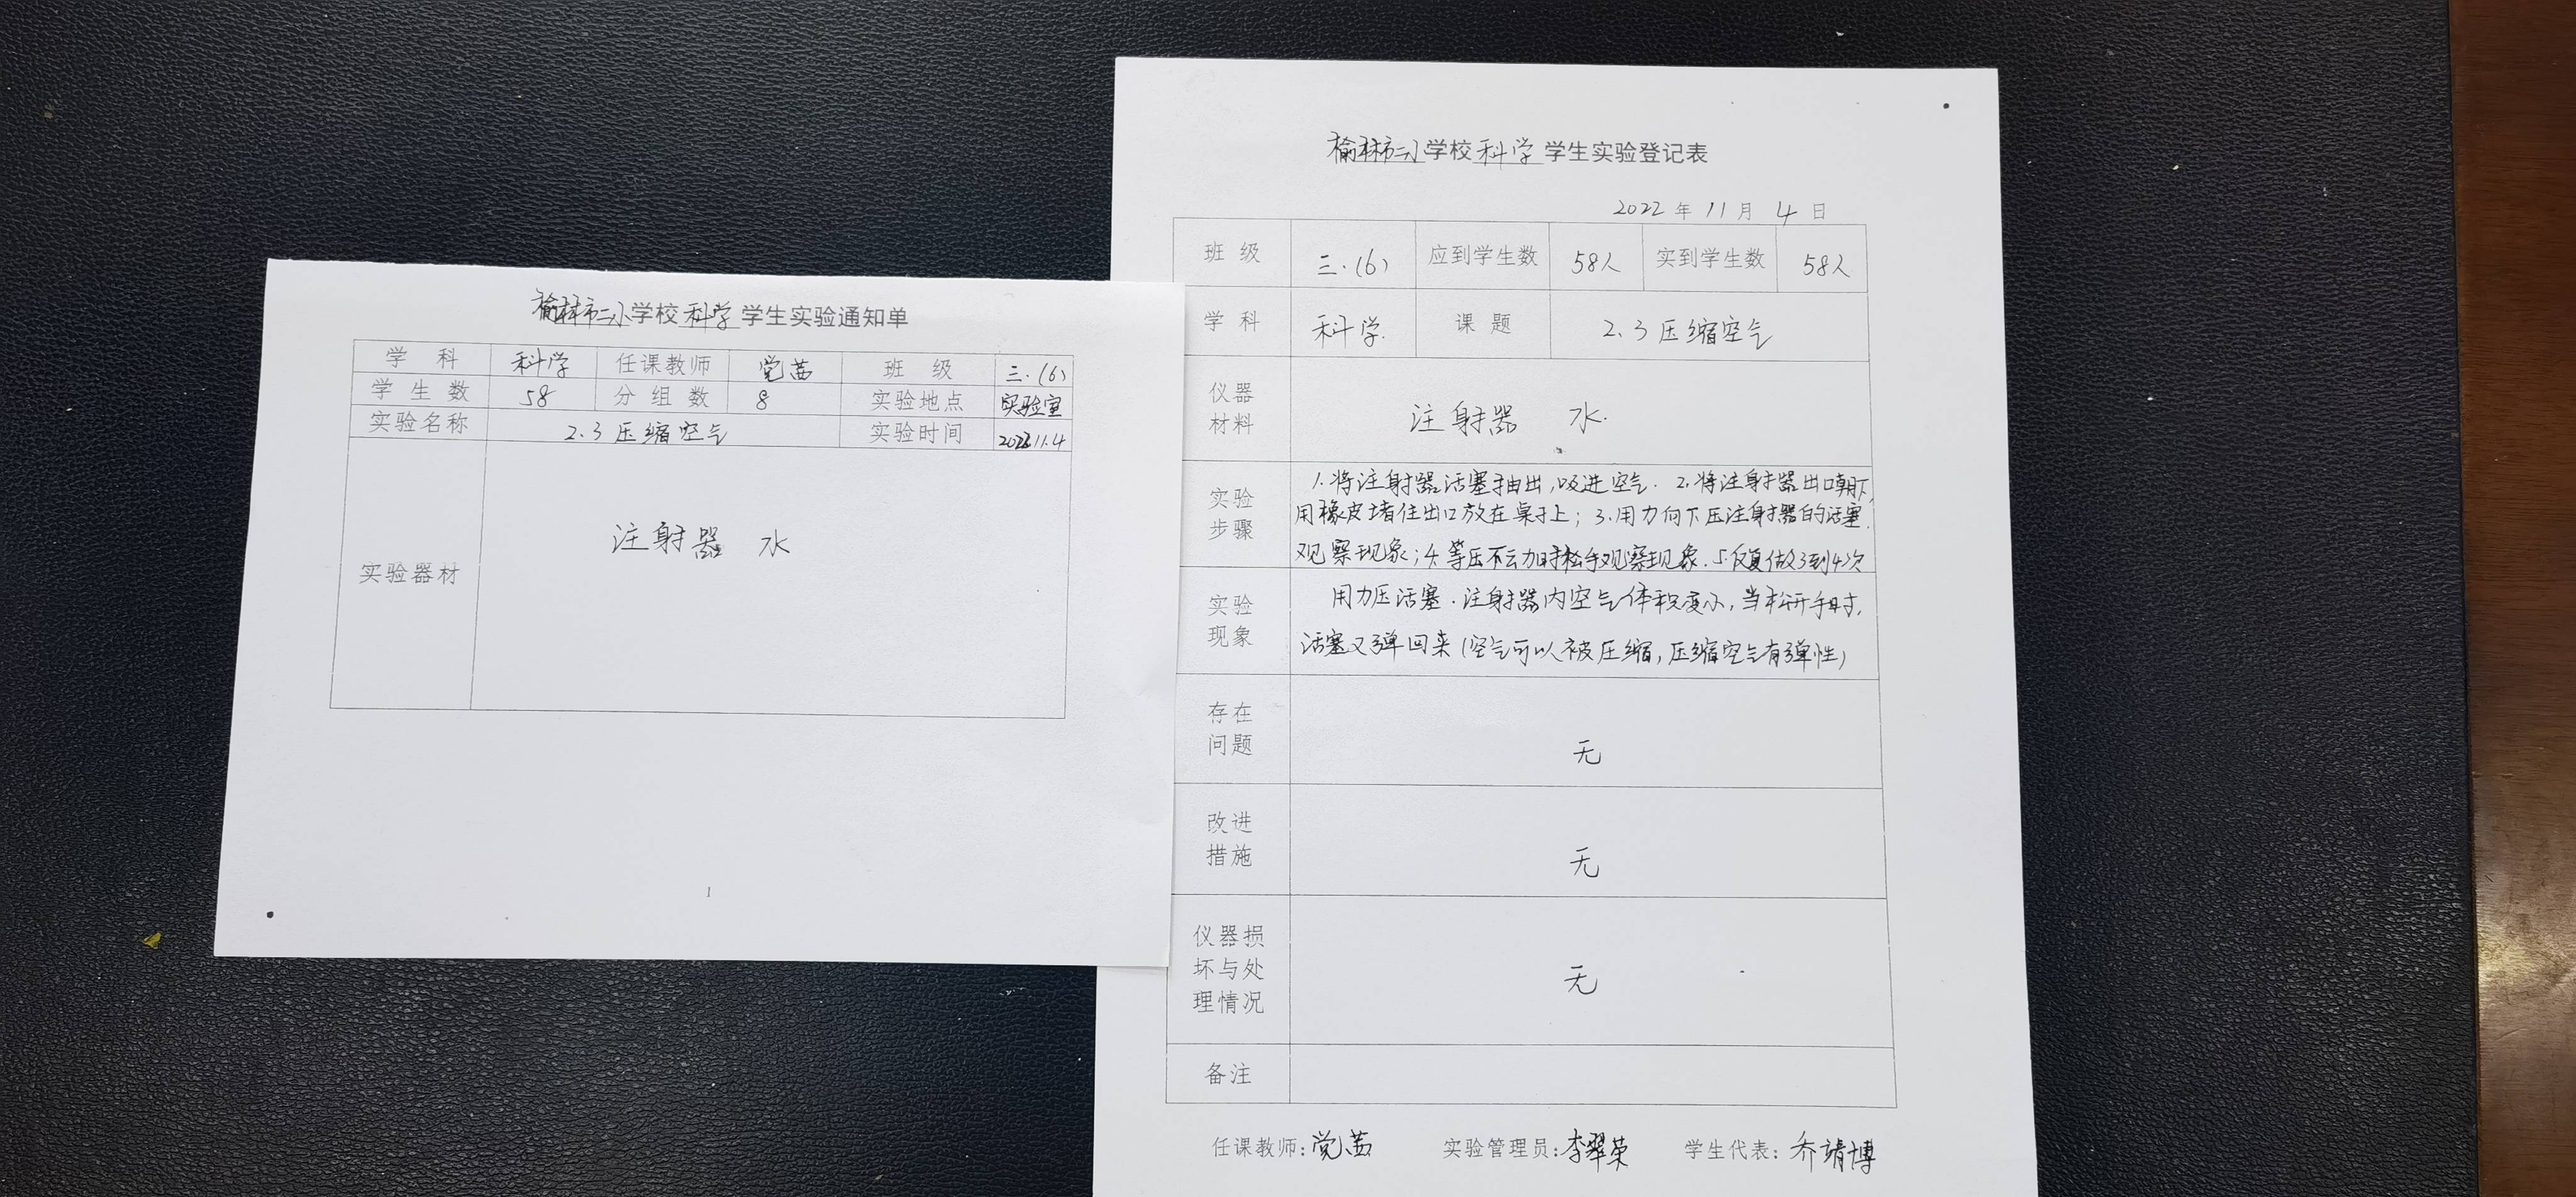 榆林市二小学校科学学生实验通知单
学 科 科学 任课教师 党茜 班 级 三.(6)
学 生 数 58 分 组 数 8 实验地点 实验室
实验名称 2.3 压缩空气 实验时间 2022.11.4
实验器材 注射器 水
1
榆林市二小学校科学学生实验登记表
2022 年 11 月 4 日
班 级 三.(6) 应到学生数 58人 实到学生数 58人
学 科 科学. 课 题 2.3 压缩空气
仪器
材料
注射器 水.
实验
步骤
1.将注射器活塞抽出,吸进空气. 2.将注射器出口朝下,
用橡皮堵住出口放在桌子上; 3.用力向下压注射器的活塞.
观察现象; 4.等压不动时松手观察现象. 5.反复做3到4次
实验
现象
用力压活塞.注射器内空气体积变小,当松开手时,
活塞又弹回来(空气可以被压缩,压缩空气有弹性)
存在
问题
无
改进
措施
无
仪器损
坏与处
理情况
无
备注
任课教师:党茜 实验管理员:李翠荣 学生代表:乔靖博